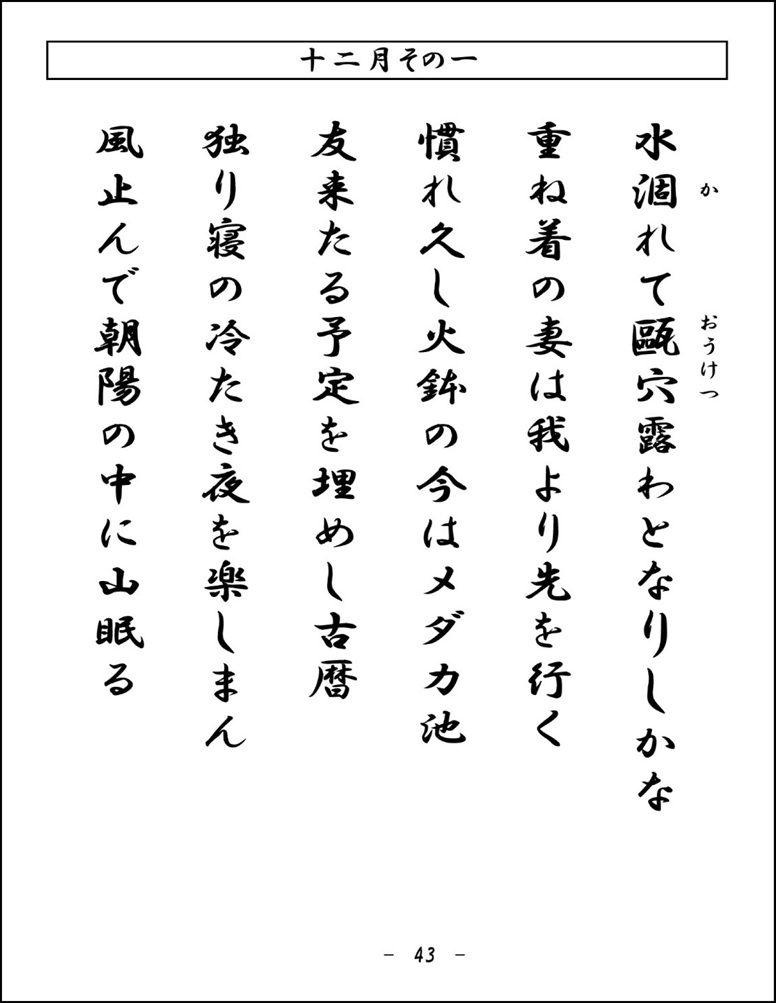 十二月その一
水涸れて甌穴露わとなりしかな
か
おうけつ
重ね着の妻は我より先を行く
慣れ久し火鉢の今はメダカ池
友来たる予定を埋めし古暦
独り寝の冷たき夜を楽しまん
風止んで朝陽の中に山眠る
- 43 -